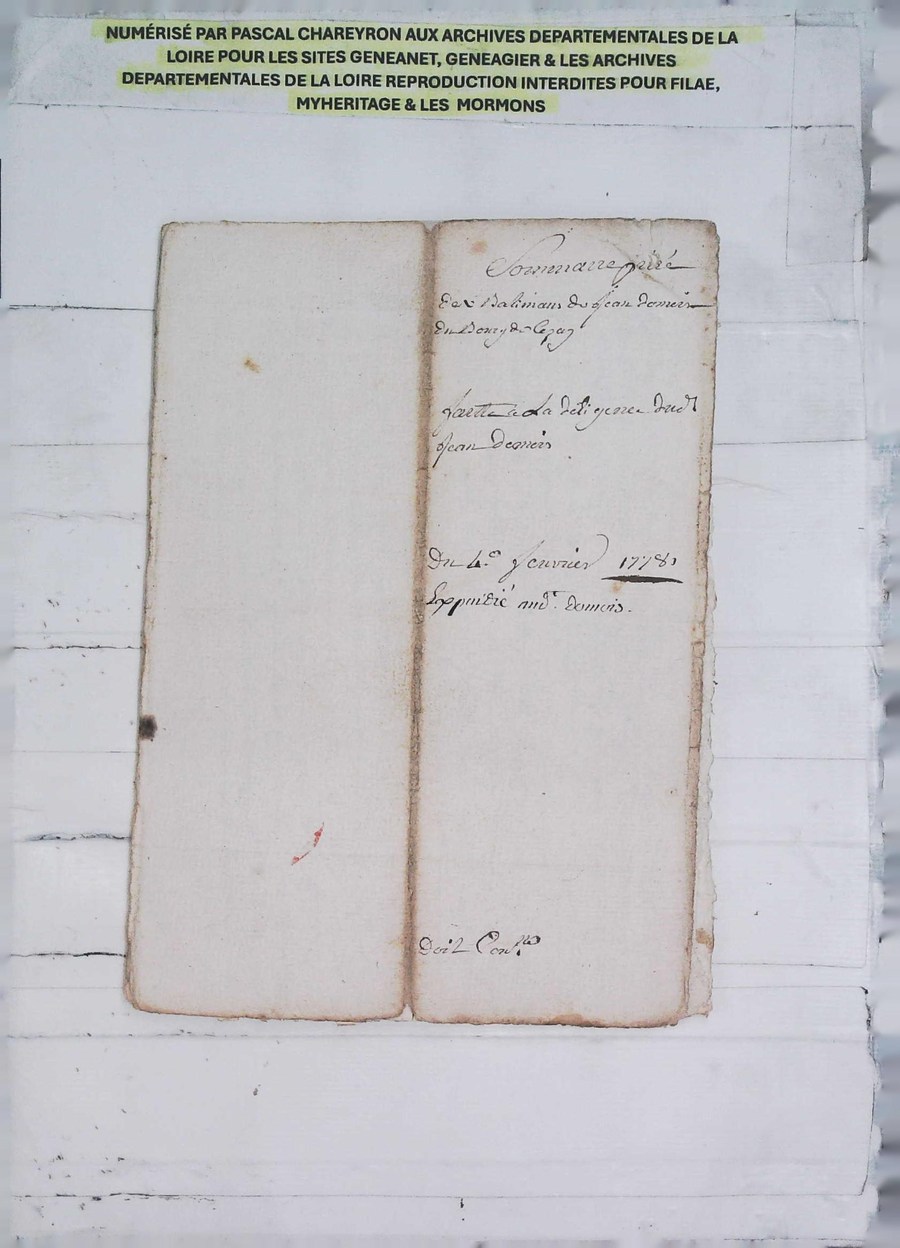 NUMÉRISÉ PAR PASCAL CHAREYRON AUX ARCHIVES DEPARTEMENTALES DE LA
LOIRE POUR LES SITES GENEANET, GENEAGIER & LES ARCHIVES
DEPARTEMENTALES DE LA LOIRE REPRODUCTION INTERDITES POUR FILAE,
MYHERITAGE & LES MORMONS
Sommaire prisé
des Batimans de Jean
du Bourg de
faitte a La diligence dudt
Jean
Du 4e fevrier 1778
Expedié
Doit